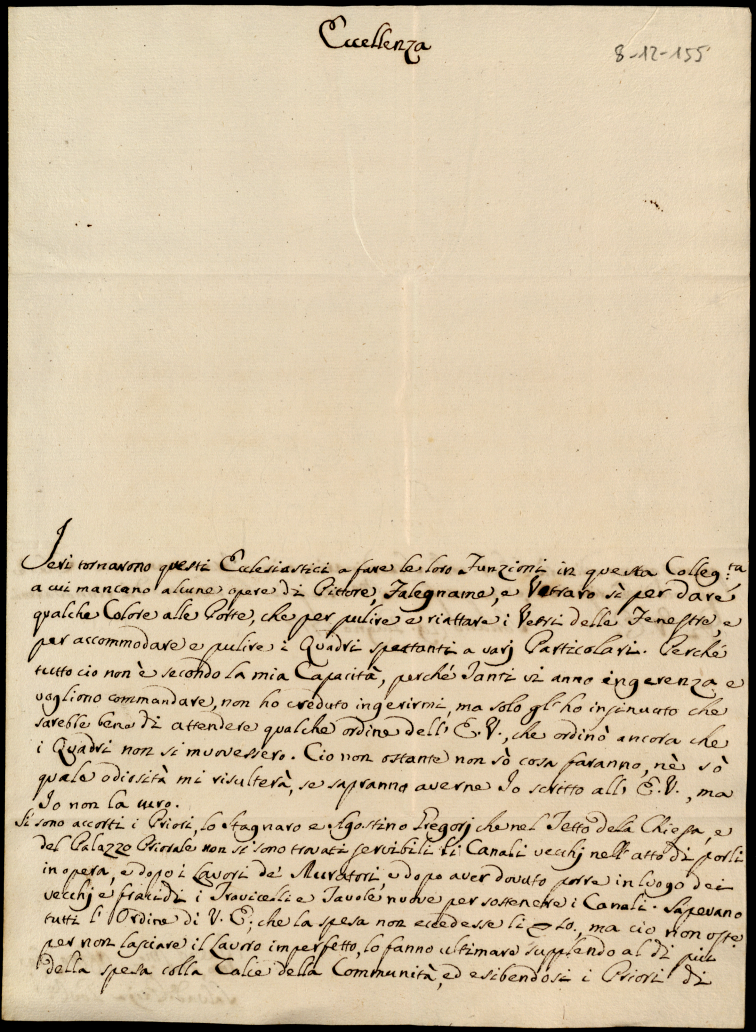 Eccellenza
8-12-155
Jeri tornarono questi Ecclesiastici a fare le loro Funzioni in questa Colleg.ta
a cui mancano alcune opere di Pittore, Falegname, e Vetraro sì per dare
qualche Colore alle Porte, che per pulire e riattare i Vetri delle Fenestre, e
per accommodare e pulire i Quadri spettanti a varj Particolari. Perché
tutto cio non è secondo la mia Capacità, perché Tanti vi anno ingerenza e
vogliono commandare, non ho creduto ingerirmi, ma solo gl'ho insinuato che
sarebbe bene di attendere qualche ordine dell' E.V., che ordinò ancora che
i Quadri non si muovessero. Cio non ostante non sò cosa faranno, nè sò
quale odiosità mi risulterà, se sapranno averne Io scritto all' E.V., ma
Io non la curo.
Si sono accorti i Priori, lo Stagnaro e Agostino Gregorj che nel Tetto dela Chiesa, e
del Palazzo Priorale non si sono trovati servibili li Canali vecchj nell'atto di porli
in opera, e dopo i Lavori de' Muratori, e dopo aver dovuto porre in luogo dei
vecchj e fracidi i Travicelli e Tavole nuove per sostenere i Canali. Sapevano
tutti l'Ordine di V. E; che la spesa non eccedesse li 20, ma cio non oste
per non lasciare il Lavoro imperfetto, lo fanno ultimare supplendo al di più
della spesa colla Calce della Communità, ed esibendosi i Priori di